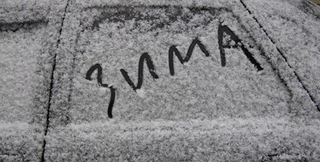 зима